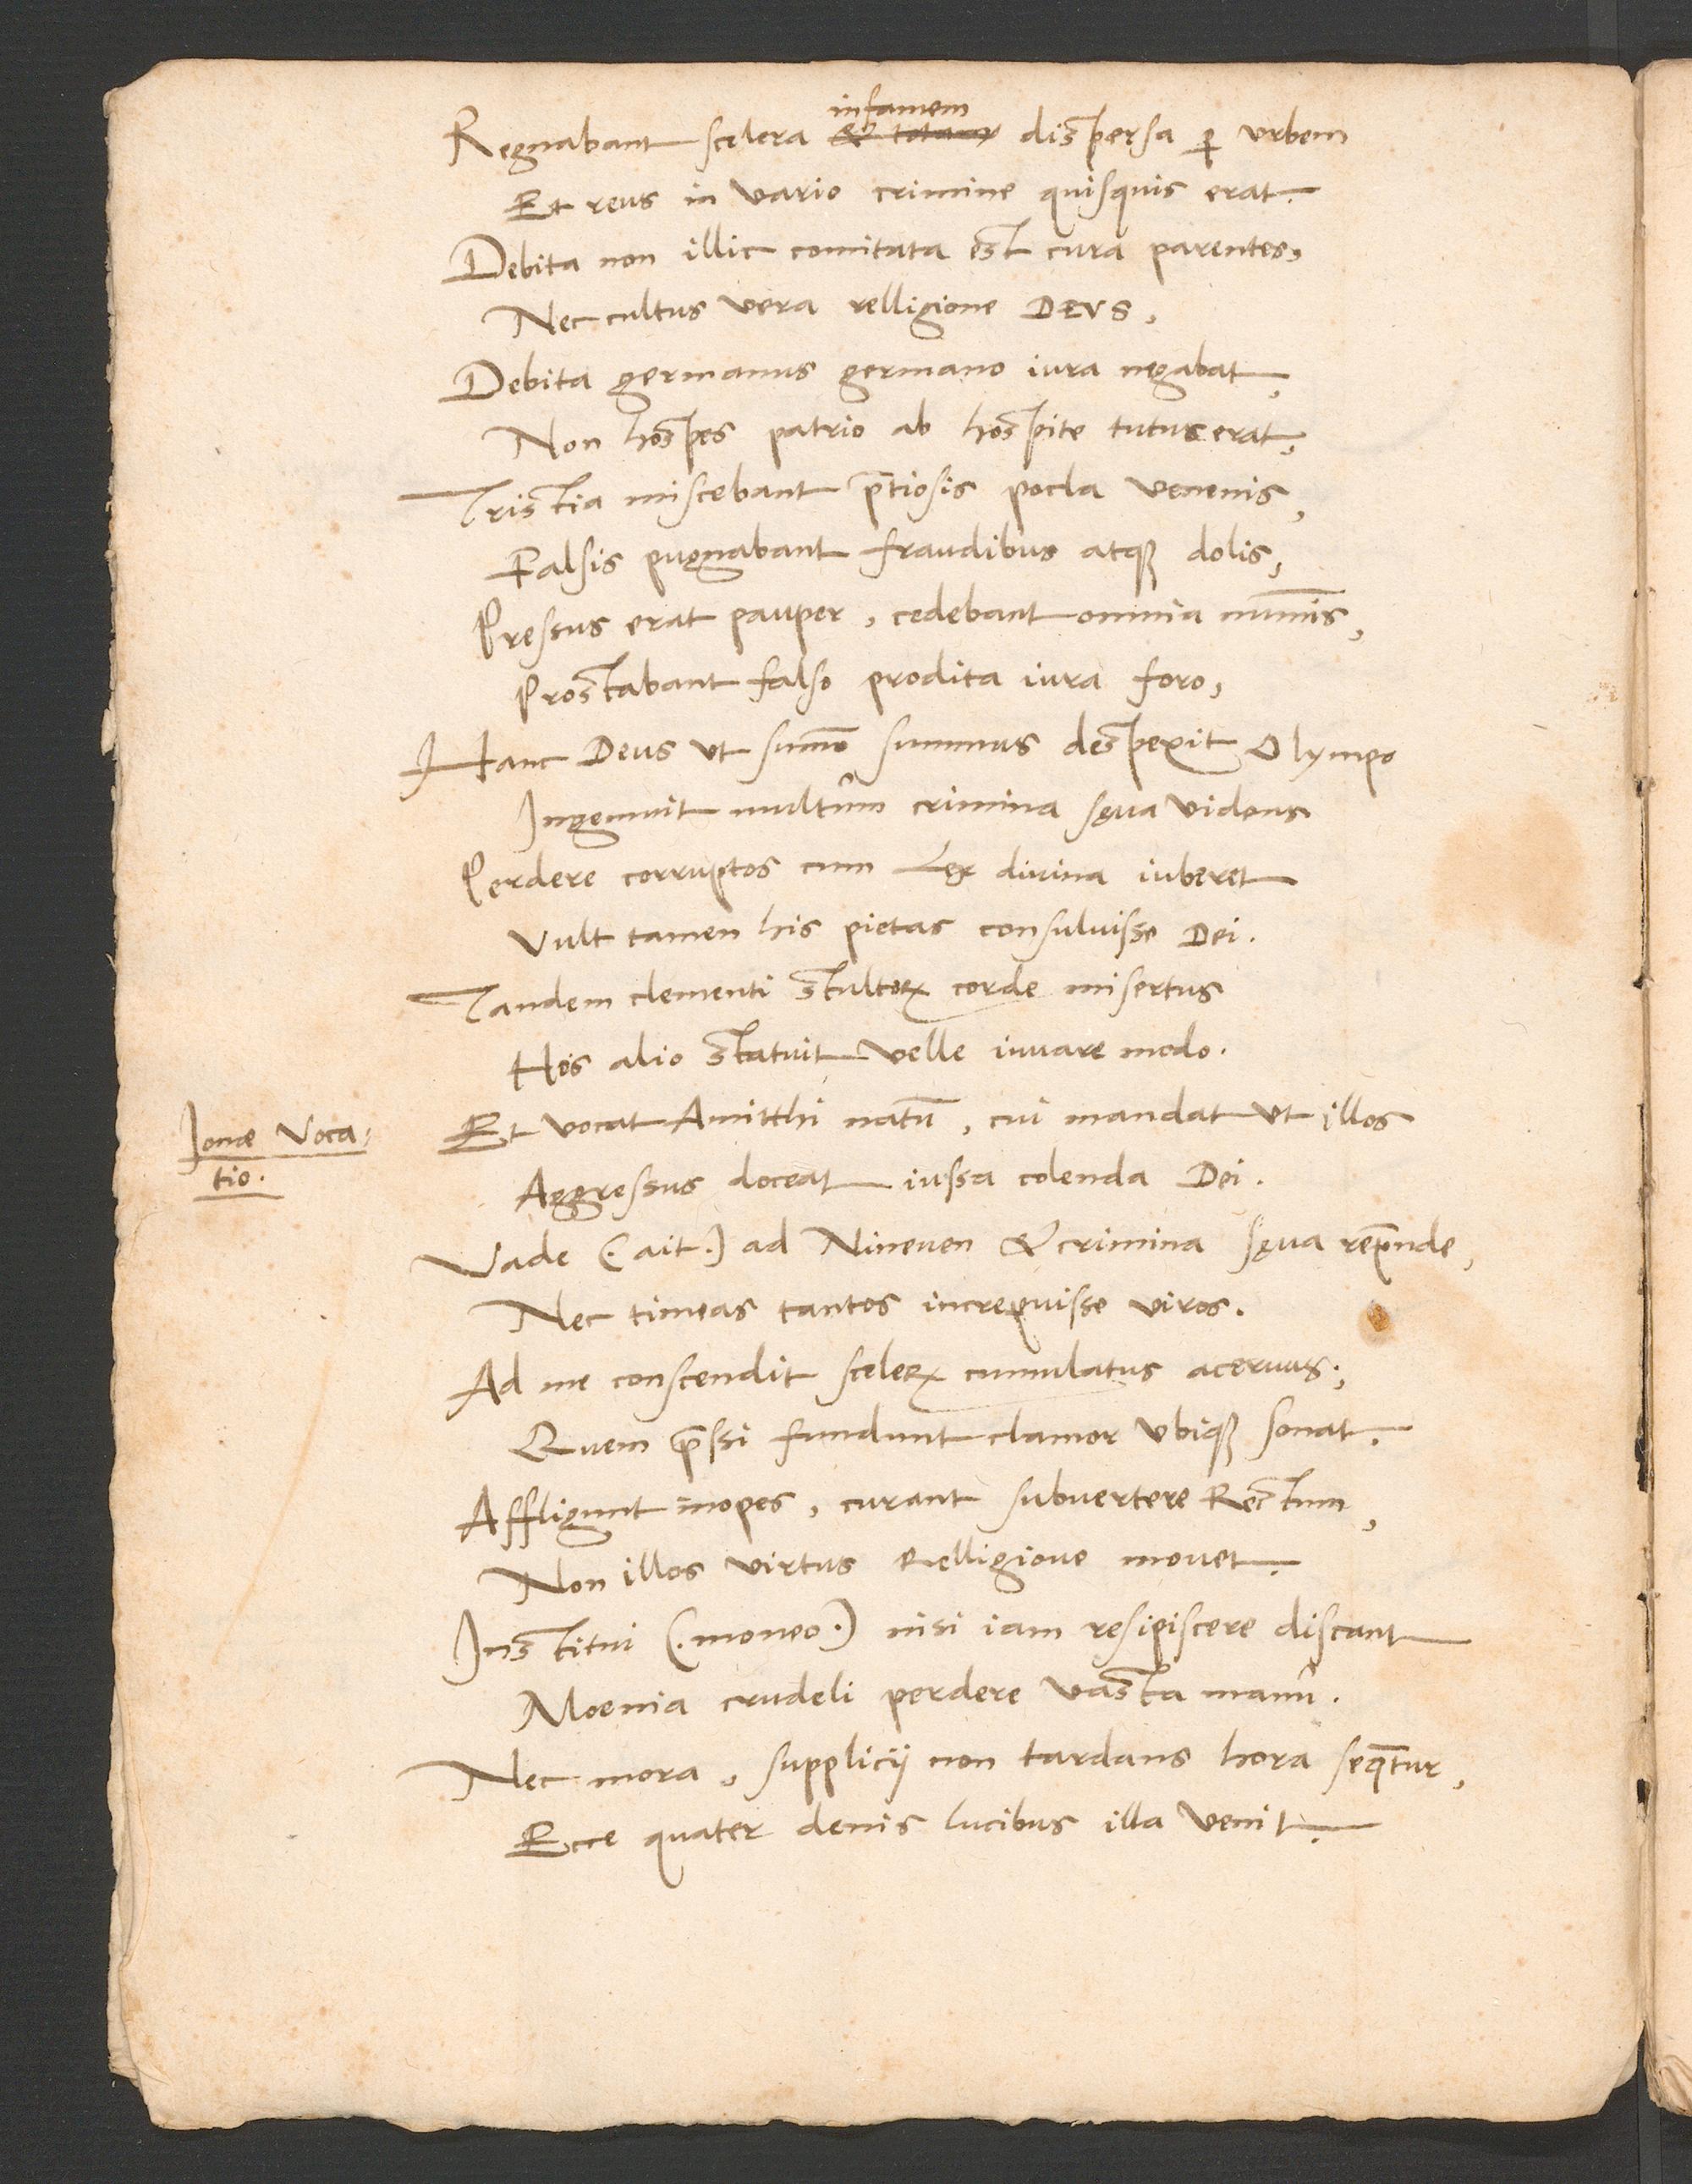 infamem
Regnabant scelera & totam dispersa ꝑ urbem
Et reus in vario crimine quisquis erat.
Debita non illic comitata est cura parentes,
Nec cultus vera relligione DEVS.
Debita germanus germano iura negabat,
Non hospes patrio ab hospite tutus erat,
Tristia miscebant p̄tiosis pocla venenis,
Falsis pugnabant fraudibus atqꝫ dolis,
Pressus erat pauper, cedebant omnia num̄is,
Prostabant falso prodita iura foro,
Hanc Deus ut sum̄o summus despexit Olympo
Ingemuit multûm crimina sęua videns
Perdere corruptos cum Lex diuina iuberet
Vult tamen his pietas consuluisse Dei.
Tandem clementi stultoꝝ corde misertus
Hos alio statuit velle iuuare modo.
Ionæ Voca-
tio.
Et vocat Amitthi natū, cui mandat ut illos
Aggressus doceat iussa colenda Dei.
Vade (.ait.) ad Nineuen & crimina sęua rep̄nde,
Nec timeas tantos increpuisse viros.
Ad me conscendit sceleꝝ cumulatus aceruus,
Quem p̄ssi fundunt clamor ubiqꝫ sonat.
Affligunt inopes, curant subuertere Rectum,
Non illos virtus Relligioue mouet.
Institui (.moneo.) nisi iam resipiscere discant
Moenia crudeli perdere vasta manû.
Nec mora, supplicij non tardans hora seq̄tur,
Ecce quater denis lucibus illa venit.